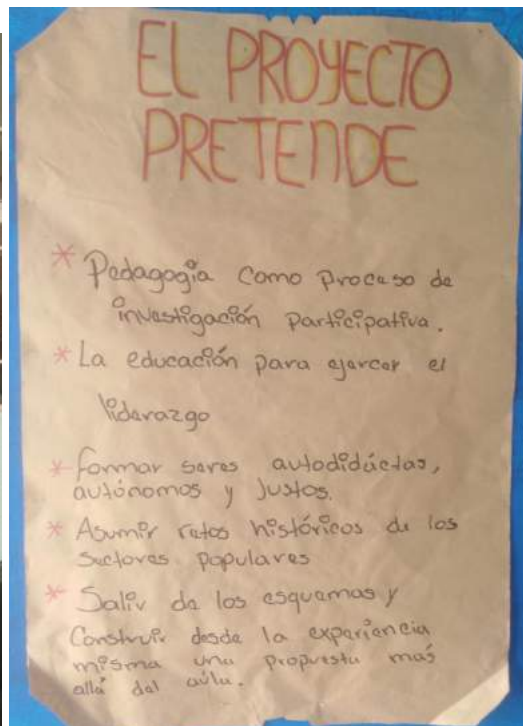 EL PROYECTO
PRETENDE
* Pedagogía como proceso de
investigación participativa.
* La educación para ejercer el
liderazgo
* formar seres autodidáctas,
autónomos y justos.
* Asumir retos históricos de los
sectores populares
* Salir de los esquemas y
Construir desde la experiencia
misma una propuesta más
allá del aula.